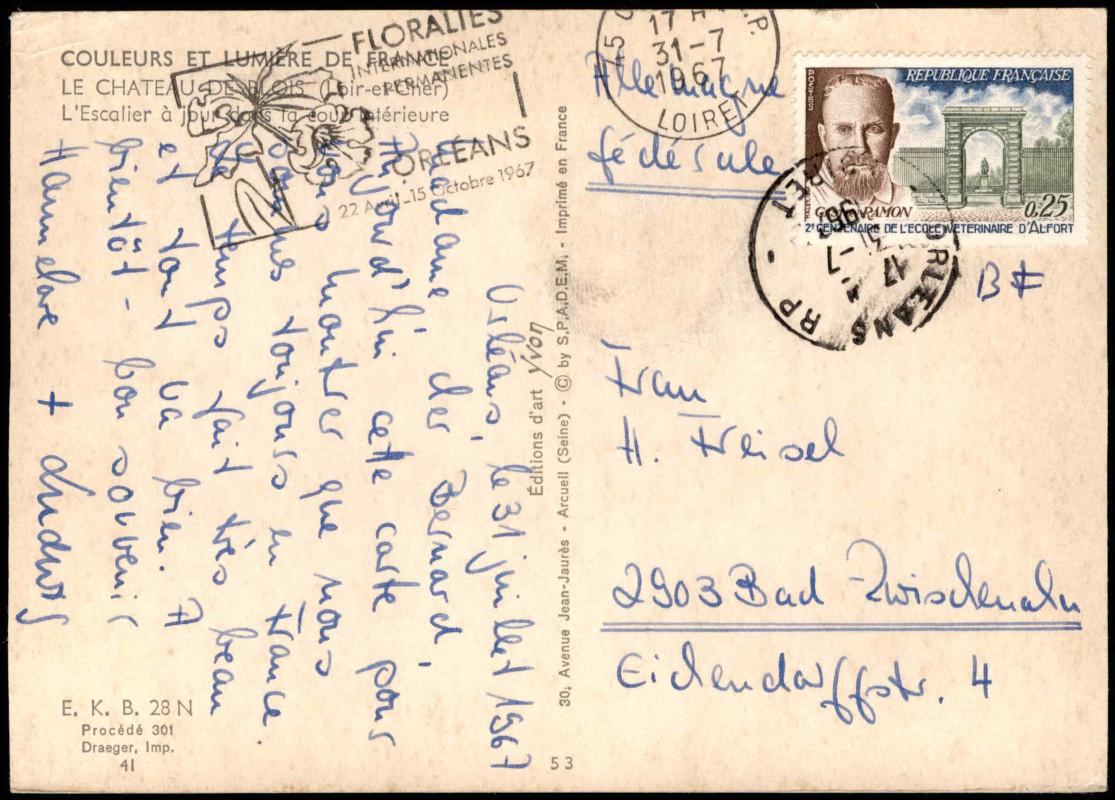 COULEURS ET LUMIÈRE DE FRANCE
LE CHATEAU DE BLOIS (Loir-et-Cher)
L'Escalier à jour dans la cour intérieure
FLORALIES
INTERNATIONALES
PERMANENTES
ORLÉANS
22 Avril-15 Octobre 1967
45 R.P.
17 H
31-7
1967
LOIRET
Orléans, le 31 juillet 1967
Madame, cher Bernard,
Aujourd'hui cete carte pour
vous montrer que nous
sommes toujours en France.
Le temps fait très beau
et tout va bien. A
bientôt - bon souvenir
Hannelore + Ludwig
E. K. B. 28 N
Procédé 301
Draeger, Imp.
41
30, Avenue Jean-Jaurès - Arcueil (Seine) - © by S.P.A.D.E.M. - Imprimé en France
Éditions d'art yvon
53
Allemagne
fédérale
RÉPUBLIQUE FRANÇAISE
G. RAMON
0,25
2E CENTENAIRE DE L'ECOLE VETERINAIRE D'ALFORT
ORLEANS RP - LOIRET
17
31-7
Frau
H. Freisel
2903 Bad Zwischenahn
Eichendorffstr. 4